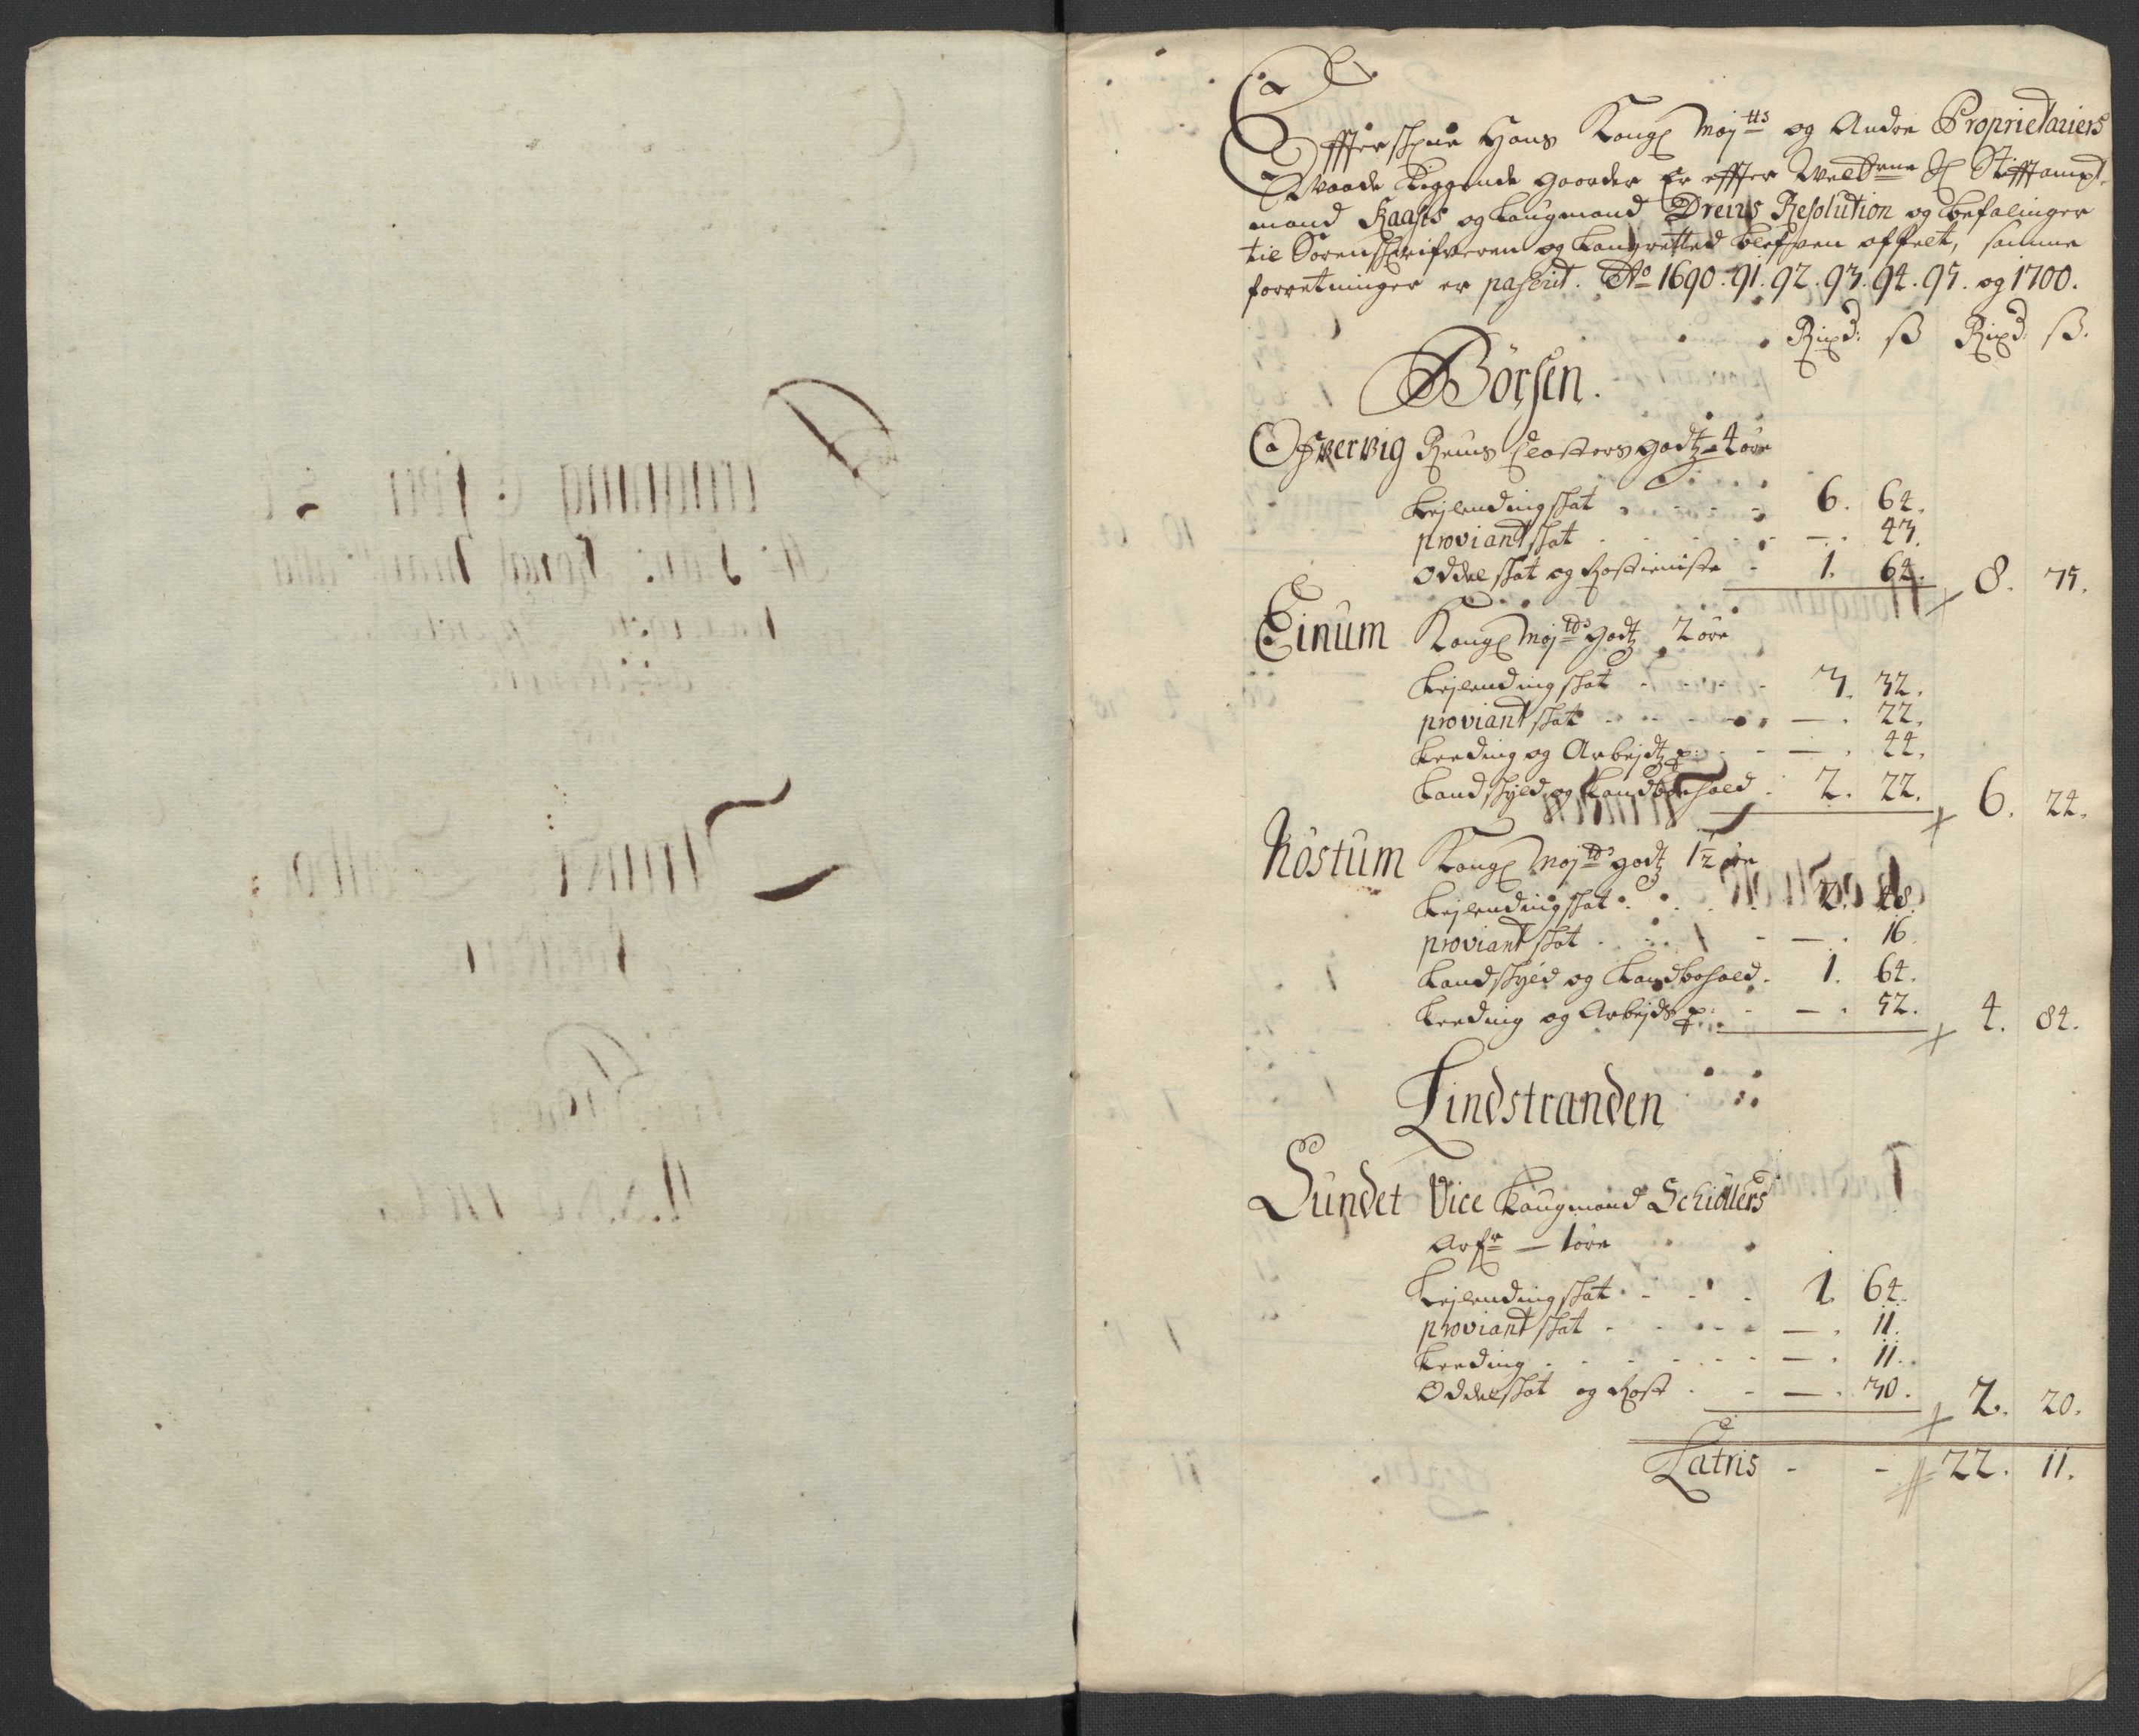 Effterskrne Hans Kongl Maj^tts og Andre Proprietariers
Øde liggende gaarder Er effter Welb^rne Hl Stifftampt-
mand Kaases og Laugmand Dreius Resolution og befalinger
til Sorenskrifveren og Laugretted blefven affelt, samme
forretninger er paserit. A^o 1690. 91. 92. 93. 94. 95. og 1700.
Rixd: ß Rixd: ß.
Börsen.
Ofwervig Reins Closters godtz - 4 øre
Leylendingskat - - - 6. 64.
proviantskat - - - - — . 43.
Oddelskat og Rostieniste - 1. 64. 8. 75.
Einum Kongl Maj^ts godtz 2 øre
Leylendingskat - - - 3. 32.
proviantskat - - - — . 22.
Leeding og Arbejdtz p: - - — . 44.
Landskyld og Landbohold - 2. 22. 6. 24.
Nöstum Kongl Maj^ts godtz 1½ øre
Leylendingskat - - - 2. 48.
proviantskat - - - — . 16.
Landskyld og Landbohold - 1. 64.
Leeding og Arbejds p: - — . 52. 4. 84.
Lindstranden
Sundet Vice Laugmand Schiøllers
Arf^r — 1 øre
Leylendingskat - - - 1. 64.
proviantskat - - - — . 11.
Leeding - - - - - — . 11.
Oddelskat og Rost - - — . 30. 2. 20.
Latris - - 22. 11.